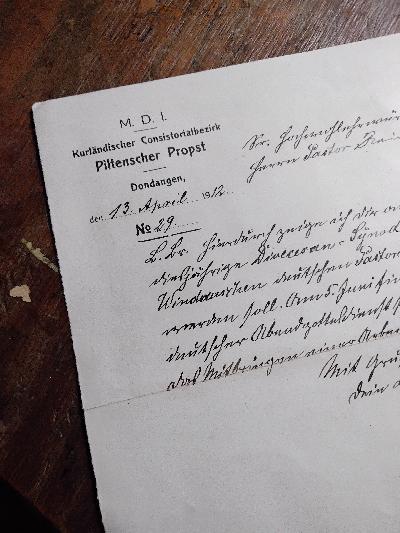 M. D. I.
Kurländischer Consistorialbezirk
Piltenscher Propst
Dondangen,
den 13. April 1912.
№ 29
Sr. Hochwohlehrwür
Herrn Pastor
L. Br. Hierdurch zeige ich Dir an
diesjährige Dioecesan-Synod
Windauschen deutschen Pastor
werden soll. Am 5. Juni fin
deutscher Abendgottesdienst
das Mitbringen einer
Mit Gru
Dein